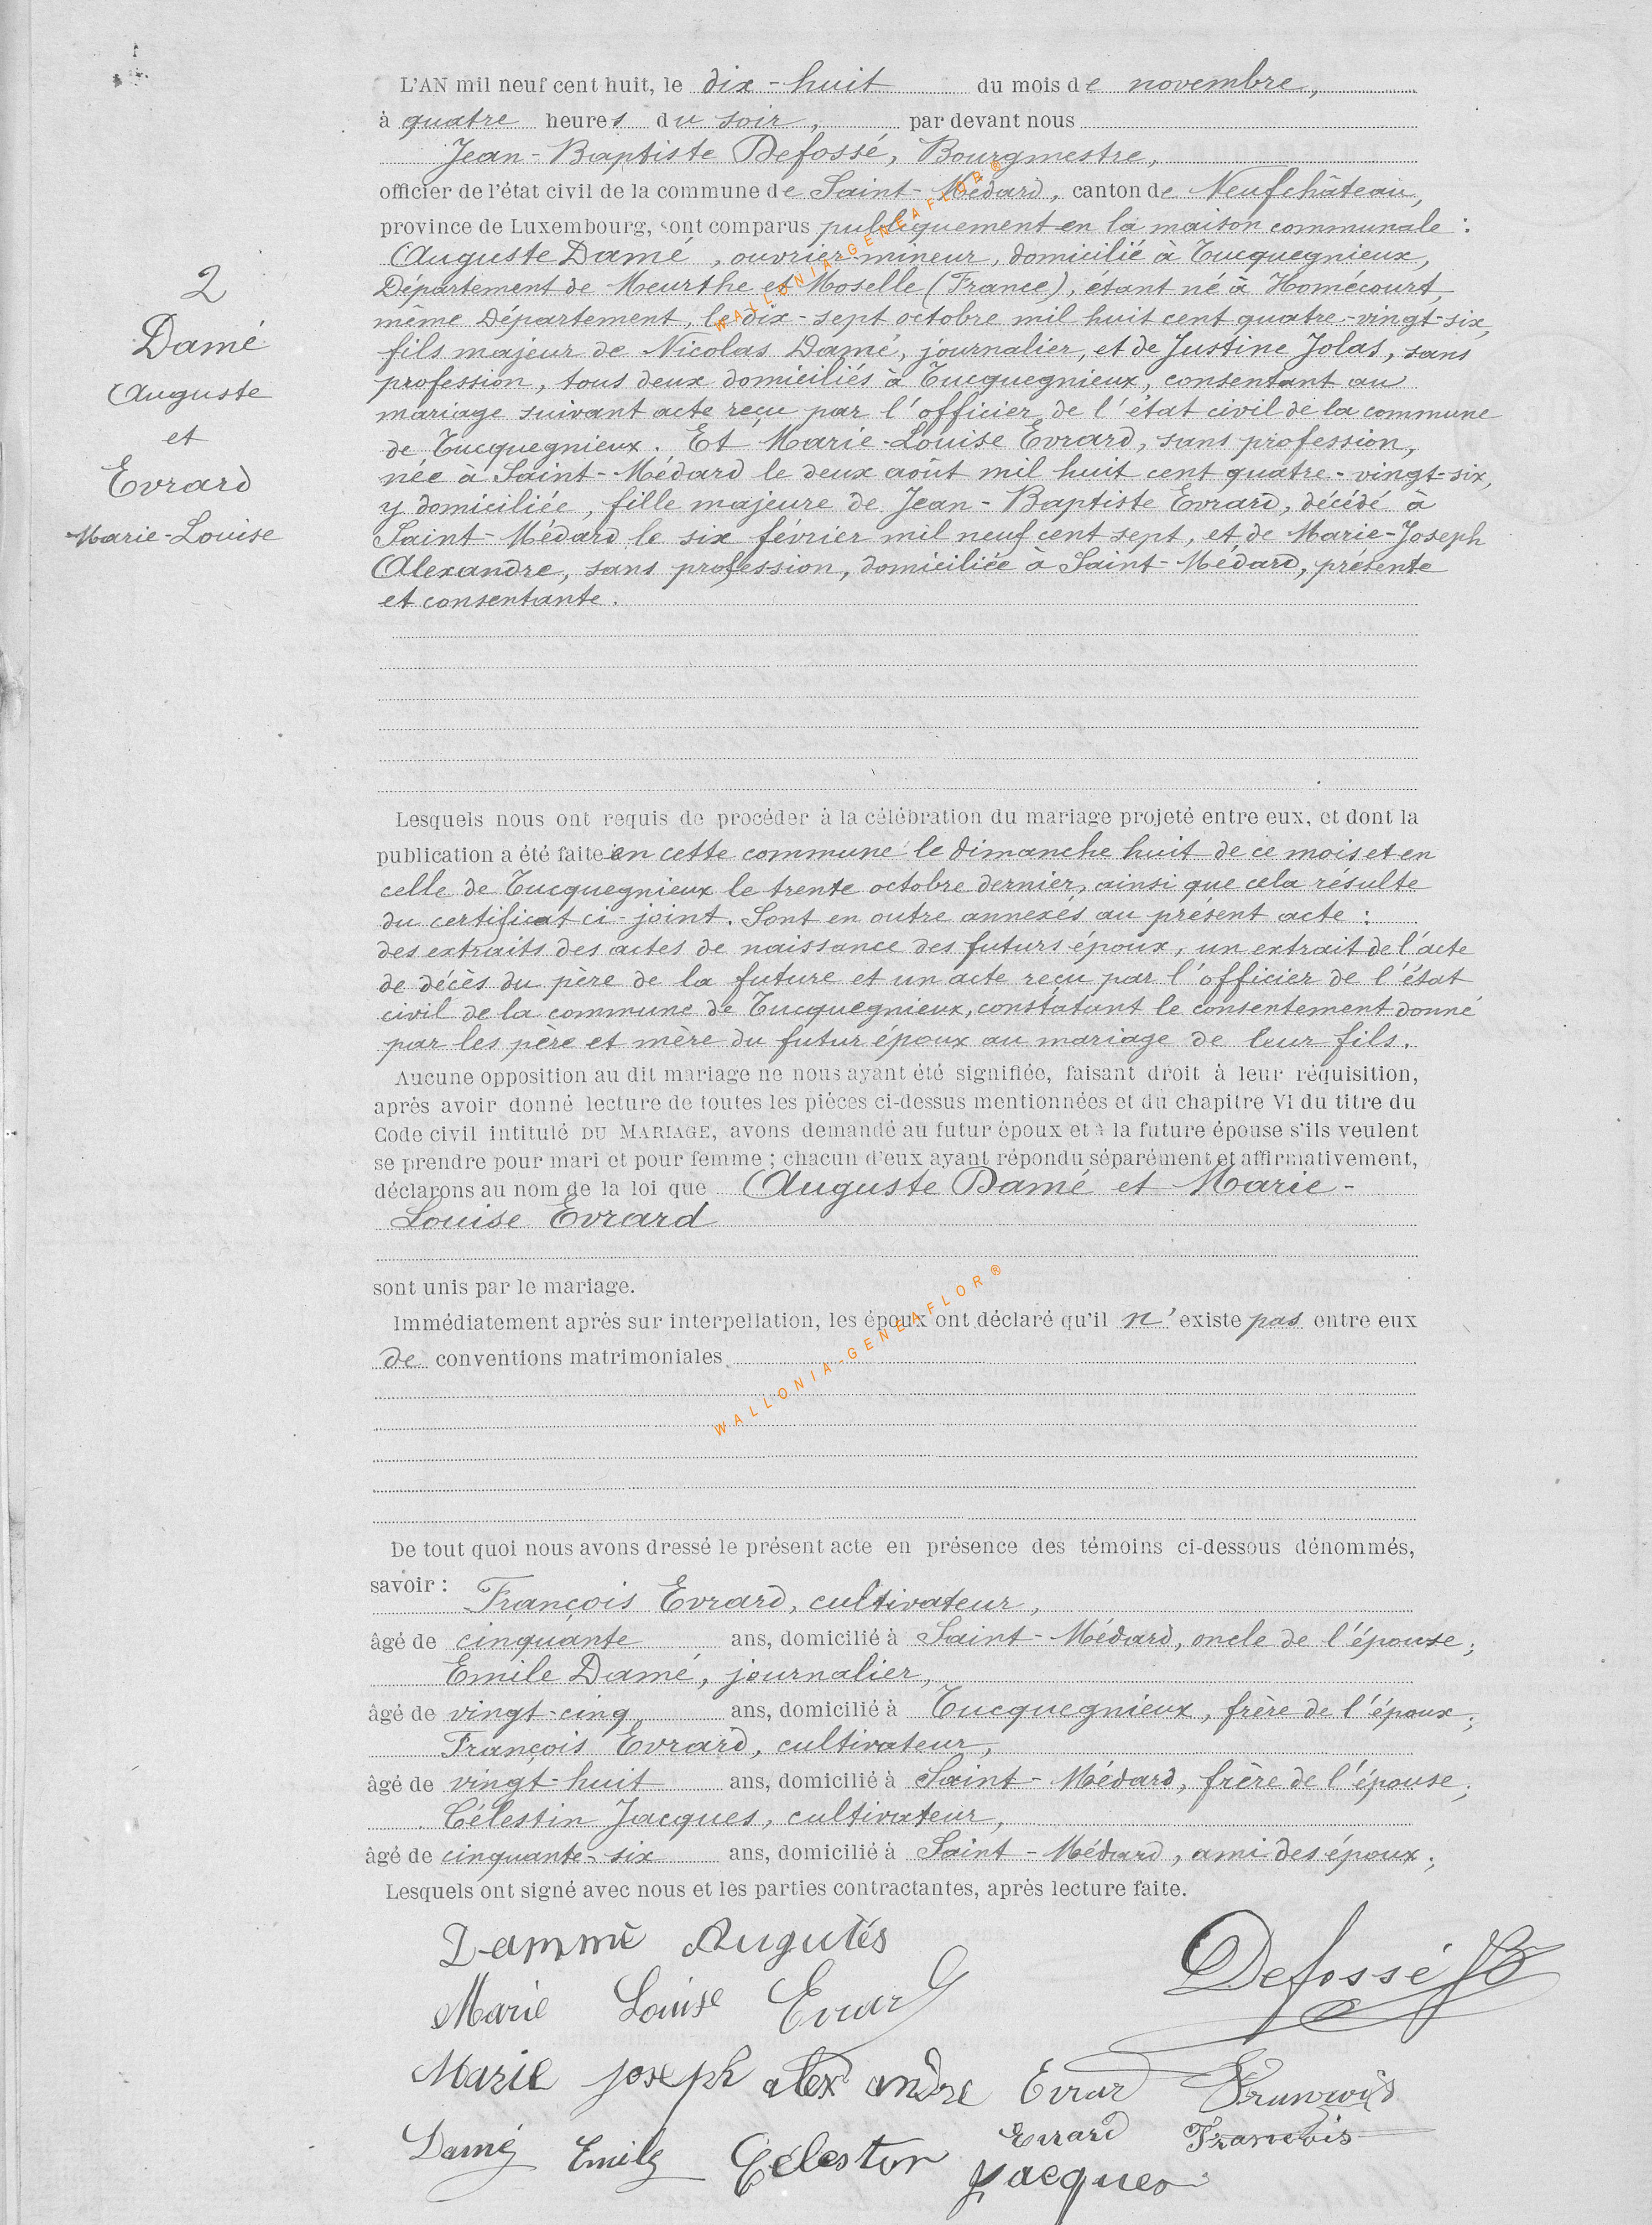 L'AN mil neuf cent huit, le dix-huit du mois de novembre,
à quatre heures du soir, par devant nous
Jean-Baptiste Defossé, Bourgmestre,
officier de l'état civil de la commune de Saint-Médard, canton de Neufchâteau,
province de Luxembourg, sont comparus publiquement en la maison communale :
Auguste Damé, ouvrier mineur, domicilié à Tucquegnieux,
Département de Meurthe et Moselle (France), étant né à Homécourt,
même Département, le dix-sept octobre mil huit cent quatre-vingt-six,
fils majeur de Nicolas Damé, journalier, et de Justine Jolas, sans
profession, tous deux domiciliés à Tucquegnieux, consentant au
mariage suivant acte reçu par l'officier de l'état civil de la commune
de Tucquegnieux. Et Marie-Louise Evrard, sans profession,
née à Saint-Médard le deux août mil huit cent quatre-vingt-six,
y domiciliée, fille majeure de Jean-Baptiste Evrard, décédé à
Saint-Médard le six février mil neuf cent sept, et de Marie-Joseph
Alexandre, sans profession, domiciliée à Saint-Médard, présente
et consentante.
2
Damé
Auguste
et
Evrard
Marie-Louise
Lesquels nous ont requis de procéder à la célébration du mariage projeté entre eux, et dont la
publication a été faite en cette commune le dimanche huit de ce mois et en
celle de Tucquegnieux le trente octobre dernier, ainsi que cela résulte
du certificat ci-joint. Sont en outre annexés au présent acte :
des extraits des actes de naissance des futurs époux, un extrait de l'acte
de décès du père de la future et un acte reçu par l'officier de l'état
civil de la commune de Tucquegnieux, constatant le consentement donné
par les père et mère du futur époux au mariage de leur fils.
Aucune opposition au dit mariage ne nous ayant été signifiée, faisant droit à leur réquisition,
après avoir donné lecture de toutes les pièces ci-dessus mentionnées et du chapitre VI du titre du
Code civil intitulé DU MARIAGE, avons demandé au futur époux et à la future épouse s'ils veulent
se prendre pour mari et pour femme ; chacun d'eux ayant répondu séparément et affirmativement,
déclarons au nom de la loi que Auguste Damé et Marie-
Louise Evrard
sont unis par le mariage.
Immédiatement après sur interpellation, les époux ont déclaré qu'il n'existe pas entre eux
de conventions matrimoniales
De tout quoi nous avons dressé le présent acte en présence des témoins ci-dessous dénommés,
savoir : François Evrard, cultivateur,
âgé de cinquante ans, domicilié à Saint-Médard, oncle de l'épouse ;
Emile Damé, journalier,
âgé de vingt-cinq ans, domicilié à Tucquegnieux, frère de l'époux ;
François Evrard, cultivateur,
âgé de vingt-huit ans, domicilié à Saint-Médard, frère de l'épouse ;
Célestin Jacques, cultivateur,
âgé de cinquante-six ans, domicilié à Saint-Médard, ami des époux ;
Lesquels ont signé avec nous et les parties contractantes, après lecture faite.
Dammé Augutés
Defossé JB
Marie Louise Evrard
Marie joseph alexandre Evrard
Evrard François
Damé Emile Célestin Jacques
WALLONIA-GENEAFLOR®
WALLONIA-GENEAFLOR®